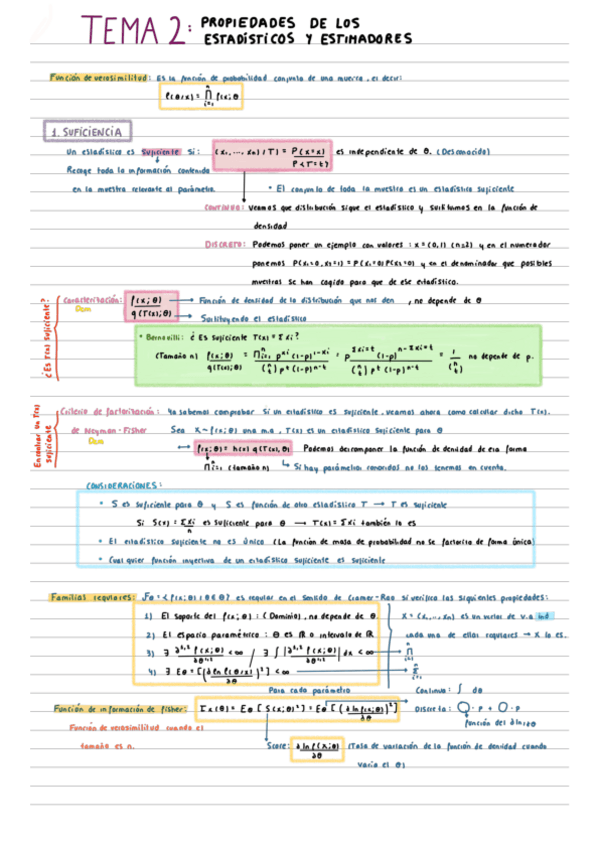 TEMA 2: PROPIEDADES DE LOS
ESTADÍSTICOS Y ESTIMADORES
Función de verosimilitud: Es la función de probabilidad conjunta de una muestra, es decir:
f(θ/x) = ∏ᵢ₌₁ⁿ f(xᵢ; θ)
1. SUFICIENCIA
Un estadístico es Suficiente si: (x₁, ..., xₙ)/T) = P(X=x) / P(T=t) es independiente de θ. (Desconocido)
Recoge toda la información contenida
en la muestra relevante al parámetro.
• El conjunto de toda la muestra es un estadístico suficiente
CONTINUO: Veamos que distribución sigue el estadístico y sustituimos en la función de
densidad
DISCRETO: Podemos poner un ejemplo con valores: x = (0,1) (n=2) y en el numerador
ponemos P(X₁=0, X₂=1) = P(X₁=0) P(X₂=1) y en el denominador que posibles
muestras se han cogido para que de ese estadístico.
¿Es T(x) suficiente?
Caracterización: f(x; θ) / q(T(x); θ) → Función de densidad de la distribución que nos den, no depende de θ
Dem
→ Sustituyendo el estadístico
• Bernoulli: ¿Es Suficiente T(x) = Σxᵢ?
(Tamaño n) f(x; θ) / q(T(x); θ) = ∏ᵢ₌₁ⁿ p^xᵢ (1-p)^1-xᵢ / (n t) p^t (1-p)^n-t = p^Σxᵢ=t (1-p)^n-Σxᵢ=t / (n t) p^t (1-p)^n-t = 1 / (n t) no depende de p.
Encontrar un T(x) suficiente
Criterio de factorización: Ya sabemos comprobar si un estadístico es suficiente, veamos ahora como calcular dicho T(x).
de Neyman-Fisher Sea X ~ f(x; θ) una m.a, T(x) es un estadístico suficiente para θ
Dem
f(x; θ) = h(x) q(T(x), θ) Podemos descomponer la función de densidad de esa forma
∏ᵢ₌₁ⁿ (tamaño n) Si hay parámetros conocidos no los tenemos en cuenta.
CONSIDERACIONES:
• S es suficiente para θ y S es función de otro estadístico T → T es suficiente
Si S(x) = Σxᵢ / n es suficiente para θ → T(x) = Σxᵢ también lo es
• El estadístico suficiente no es único (La función de masa de probabilidad no se factoriza de forma única)
• Cualquier función inyectiva de un estadístico suficiente es suficiente
Familias regulares: Fθ = {f(x; θ) θ ∈ Θ} es regular en el sentido de Cramer-Rao si verifica las siguientes propiedades:
1) El soporte del f(x; θ): (Dominio), no depende de θ
X = (x₁, ..., xₙ) es un vector de v.a ind
2) El espacio paramétrico: Θ es ℝ o intervalo de ℝ
cada una de ellas regulares → X lo es.
3) ∃ ∂¹,² f(x; θ) / ∂θ¹,² < ∞ / ∃ ∫ |∂¹,² f(x; θ) / ∂θ¹,²| dx < ∞
4) ∃ Eθ = [(∂ ln f(θ/x) / ∂θ)²] < ∞
Para cada parámetro
Función de información de Fisher: Iₓ(θ) = Eθ[S(x; θ)²] = Eθ[(∂ ln f(x; θ) / ∂θ)²]
Continua: ∫ dθ
Discreta: · P + · P
función del ∂ln/∂θ
Función de verosimilitud cuando el
tamaño es n.
Score: ∂ ln f(x; θ) / ∂θ (Tasa de variación de la función de densidad cuando
varía el θ)